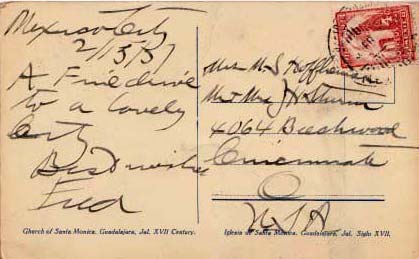 Mexico City
2/13/37
A Fine drive
to a lovely
City
Best wishes
Fred
Mrs M S Hoffheimer
Mr & Mrs J
4064 Beechwood
Cincinnati
O
USA
Church of Santa Monica. Guadalajara, Jal. XVII Century.
Iglesia de Santa Monica. Guadalajara, Jal. Siglo XVII.